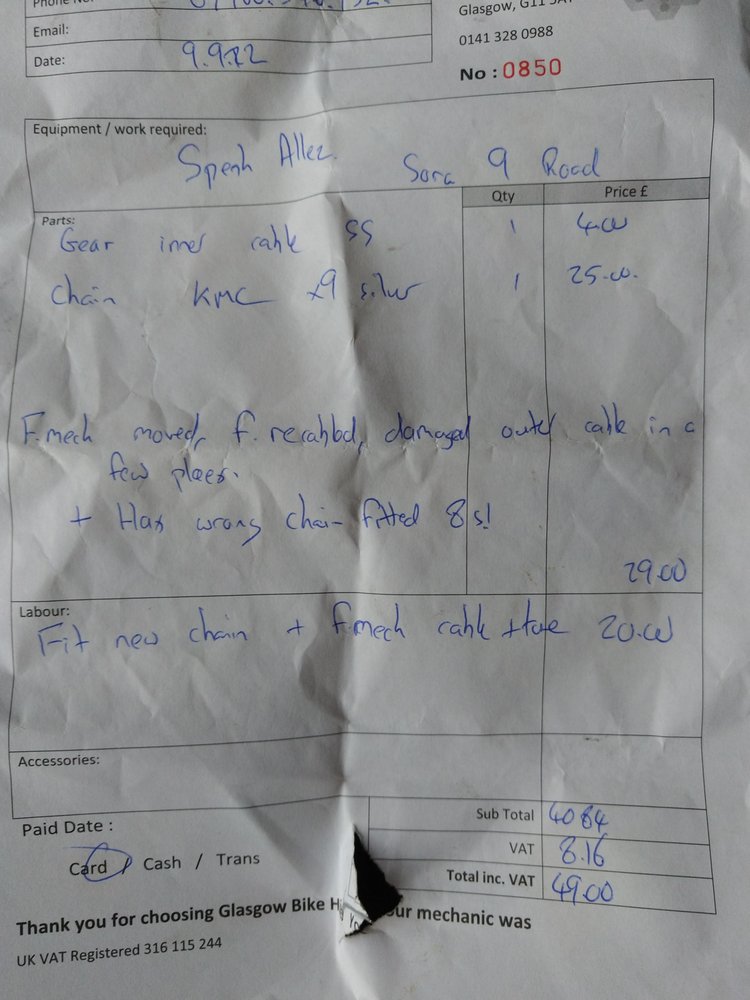 Phone No:
Glasgow, G11
Email:
0141 328 0988
Date: 9.9.22
No : 0850
Equipment / work required:
Allez. Sora 9 Road
Qty Price £
Parts:
Gear inner cable SS 1 4.00
Chain KMC x9 silver 1 25.00.
F.mech moved, f. recabled, damaged outer cable in a
few places.
+ Has wrong chain fitted 8s!
29.00
Labour:
Fit new chain + F.mech cable + tune 20.00
Accessories:
Paid Date :
Sub Total 40 84
Card / Cash / Trans
VAT 8.16
Total inc. VAT 49.00
Thank you for choosing Glasgow Bike our mechanic was
UK VAT Registered 316 115 244